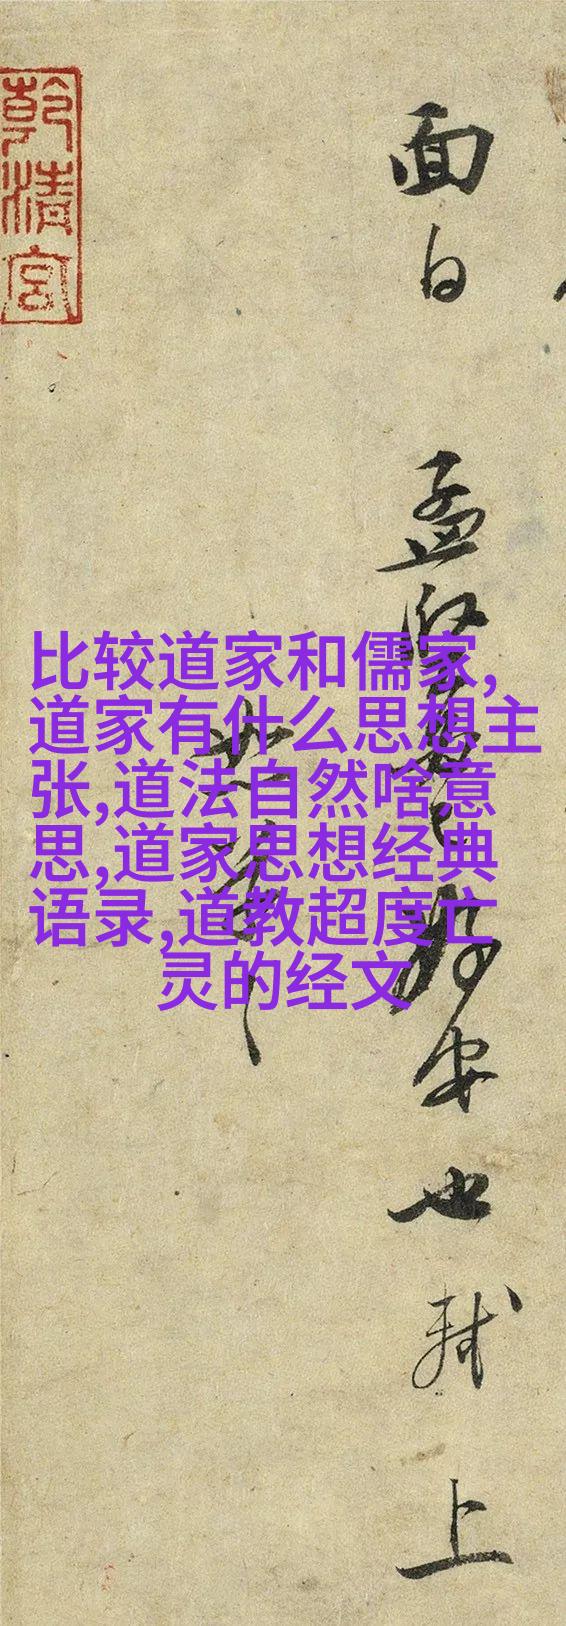 面白　孟　安也　軾　上
比较道家和儒家,
道家有什么思想主
张,道法自然啥意
思,道家思想经典
语录,道教超度亡
灵的经文
乾清宮